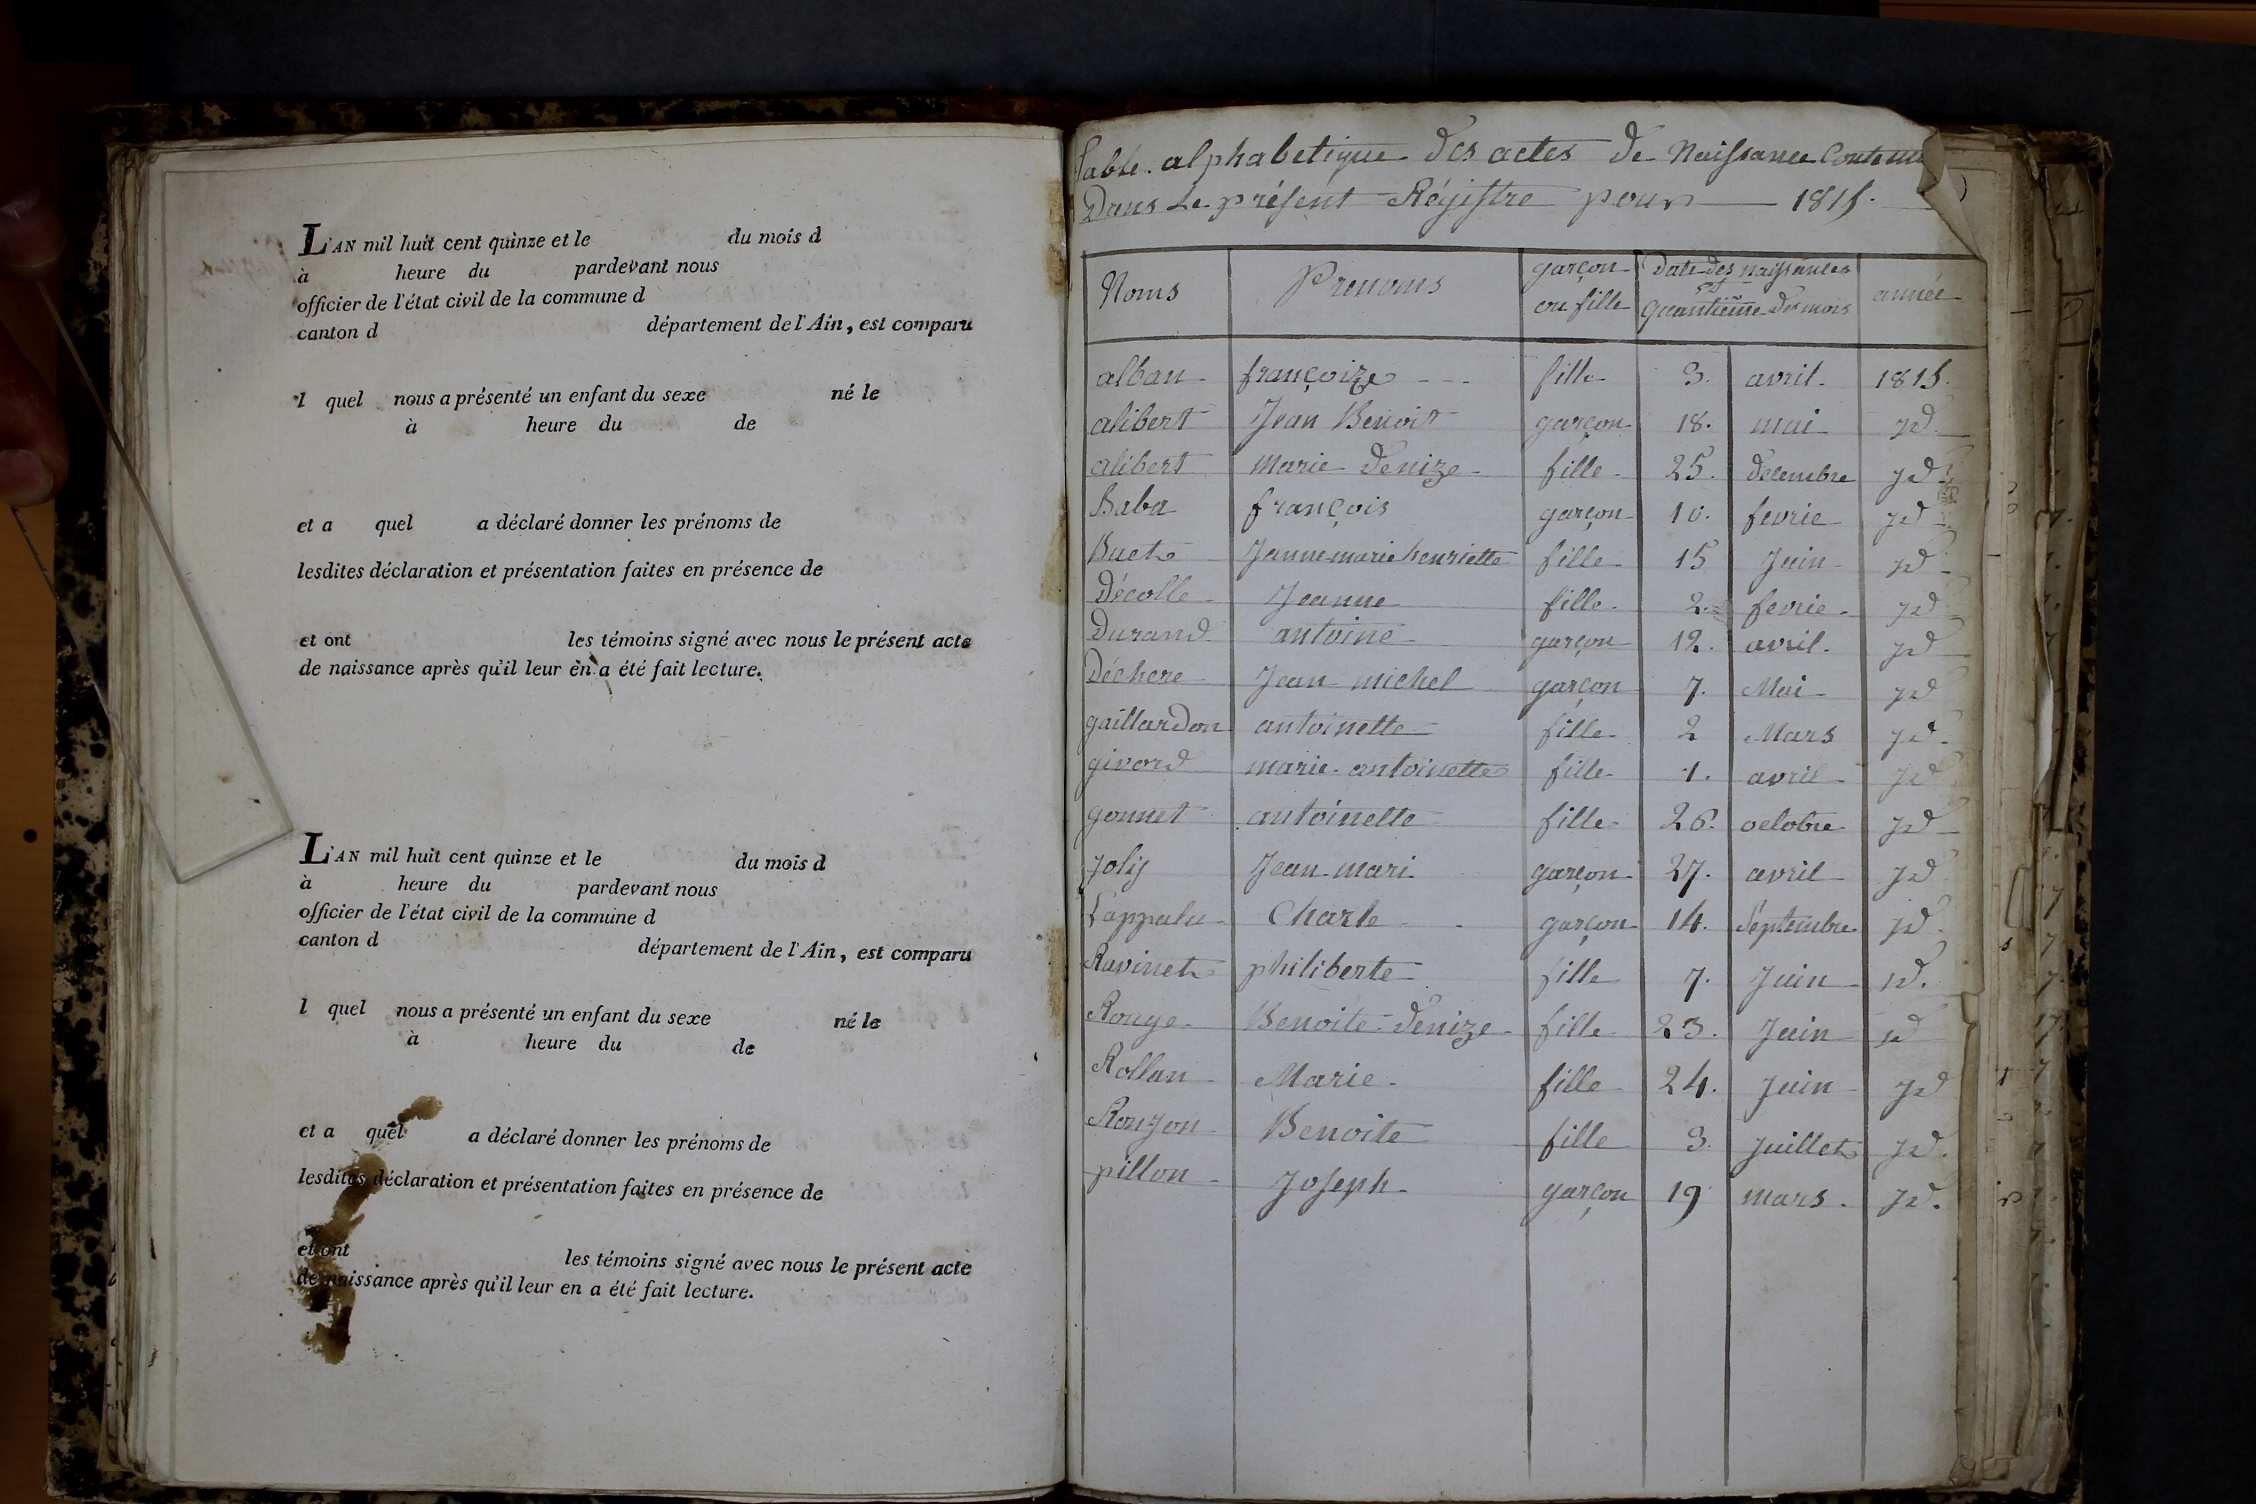 L'AN mil huit cent quinze et le du mois d
à heure du pardevant nous
officier de l'état civil de la commune d
canton d département de l'Ain, est comparu
l quel nous a présenté un enfant du sexe né le
à heure du de
et a quel a déclaré donner les prénoms de
lesdites déclaration et présentation faites en présence de
et ont les témoins signé avec nous le présent acte
de naissance après qu'il leur en a été fait lecture.
L'AN mil huit cent quinze et le du mois d
à heure du pardevant nous
officier de l'état civil de la commune d
canton d département de l'Ain, est comparu
l quel nous a présenté un enfant du sexe né le
à heure du de
et a quel a déclaré donner les prénoms de
lesdites déclaration et présentation faites en présence de
et ont les témoins signé avec nous le présent acte
de naissance après qu'il leur en a été fait lecture.
Table alphabetique des actes de Naissance Contenu
Dans Le présent Régistre pour 1815.
Noms Prenoms garçon ou fille Date des naissances quantième des mois année
alban françoize fille 3. avril 1815.
alibert Jean Benoit garçon 18. mai jd
alibert Marie denize fille 25. decembre jd
Baba françois garçon 10. fevrie jd
Buet Jeanne marie henriette fille 15 Juin jd
Décolle Jeanne fille 2. fevrie jd
Durand antoine garçon 12. avril jd
Déchere Jean michel garçon 7. Mai jd
gaillardon antoinette fille 2 Mars jd
givord marie antoinette fille 1. avril jd
gonnet antoinette fille 26. octobre jd
Joly Jean mari garçon 27. avril jd
Lappalu Charle garçon 14. Septembre jd
Ravinet philiberte fille 7. Juin id.
Rouge Benoite denize fille 23. Juin id
Rollan Marie fille 24. Juin jd
Rongon Benoite fille 3. Juillet jd.
pillon Joseph garçon 19 mars jd.